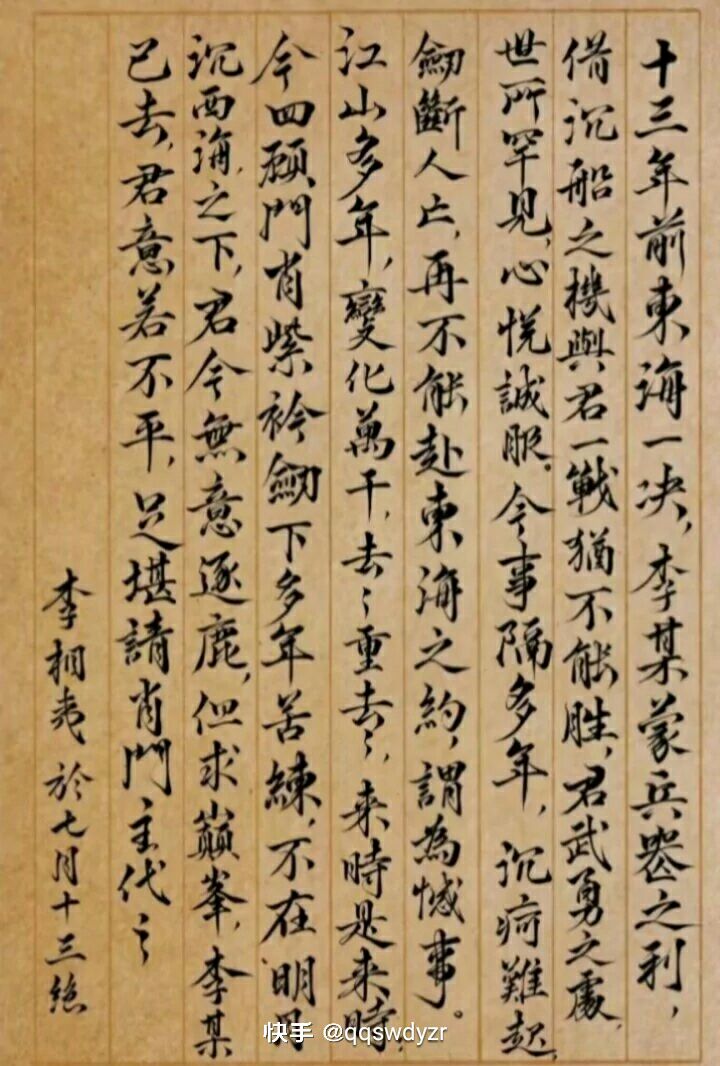 十三年前東海一决，李某蒙兵器之利，
借沉船之機與君一戰猶不能勝，君武勇之處，
世所罕見，心悅誠服。今事隔多年，沉疴難起，
劒斷人亡，再不能赴東海之約，謂為憾事。
江山多年，變化萬千，去〻重去〻，来時是来時，
今四顧門肖紫衿劒下多年苦練，不在明月
沉西海，之下，君今無意逐鹿，但求巔峯，李某
已去，君意若不平，足堪請肖門主代之
李相夷於七月十三絶
快手 @qqswdyzr